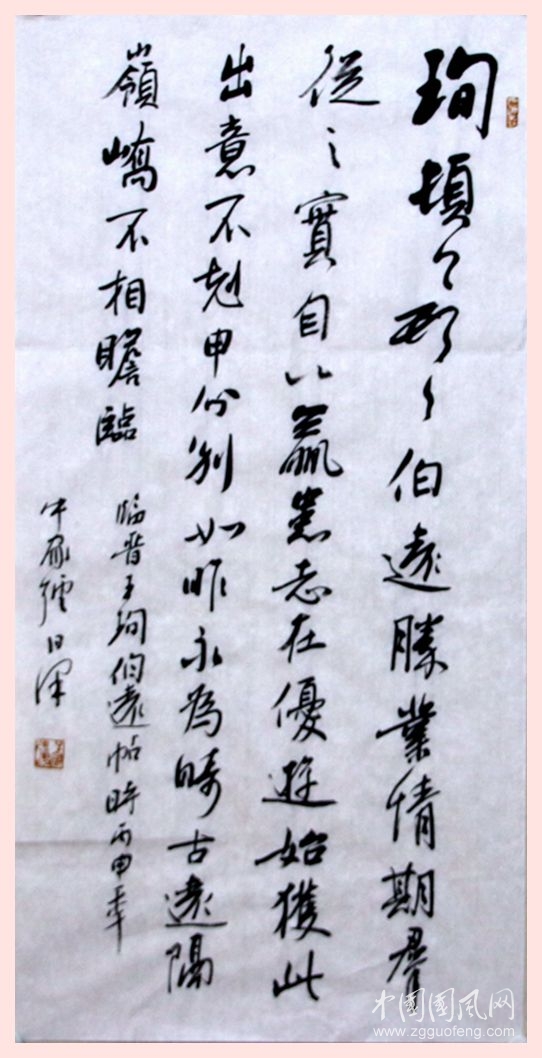 珣頓〻首〻伯遠勝業情期群
從之寶自以羸患志在優遊始獲此
出意不剋申分別如昨永為疇古遠隔
嶺嶠不相瞻臨
臨晉王珣伯遠帖時丙申年
中国國风网
www.zgguofeng.com